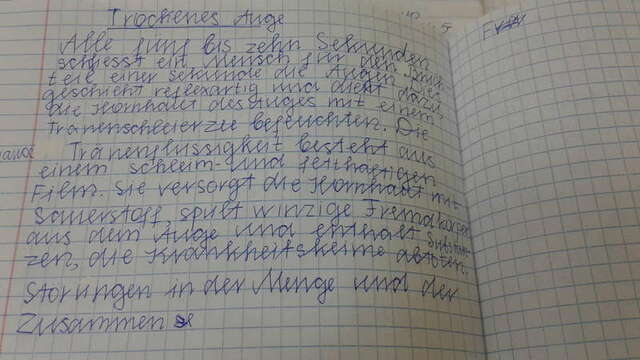 Trockenes Auge
Alle fünf bis zehn Sekunden
schliesst ein Mensch für den Bruch-
teil einer Sekunde die Augen. Dies
geschieht reflexartig und dient dazu,
die Hornhaut des Auges mit einem
Tränenschleier zu befeuchten. Die
Tränenflüssigkeit besteht aus
einem schleim- und fetthaltigen
Film. Sie versorgt die Hornhaut mit
Sauerstoff, spült winzige Fremdkörper
aus dem Auge und enthält Substan-
zen, die Krankheitskeime abtöten.
Störungen in der Menge und der
Zusammen